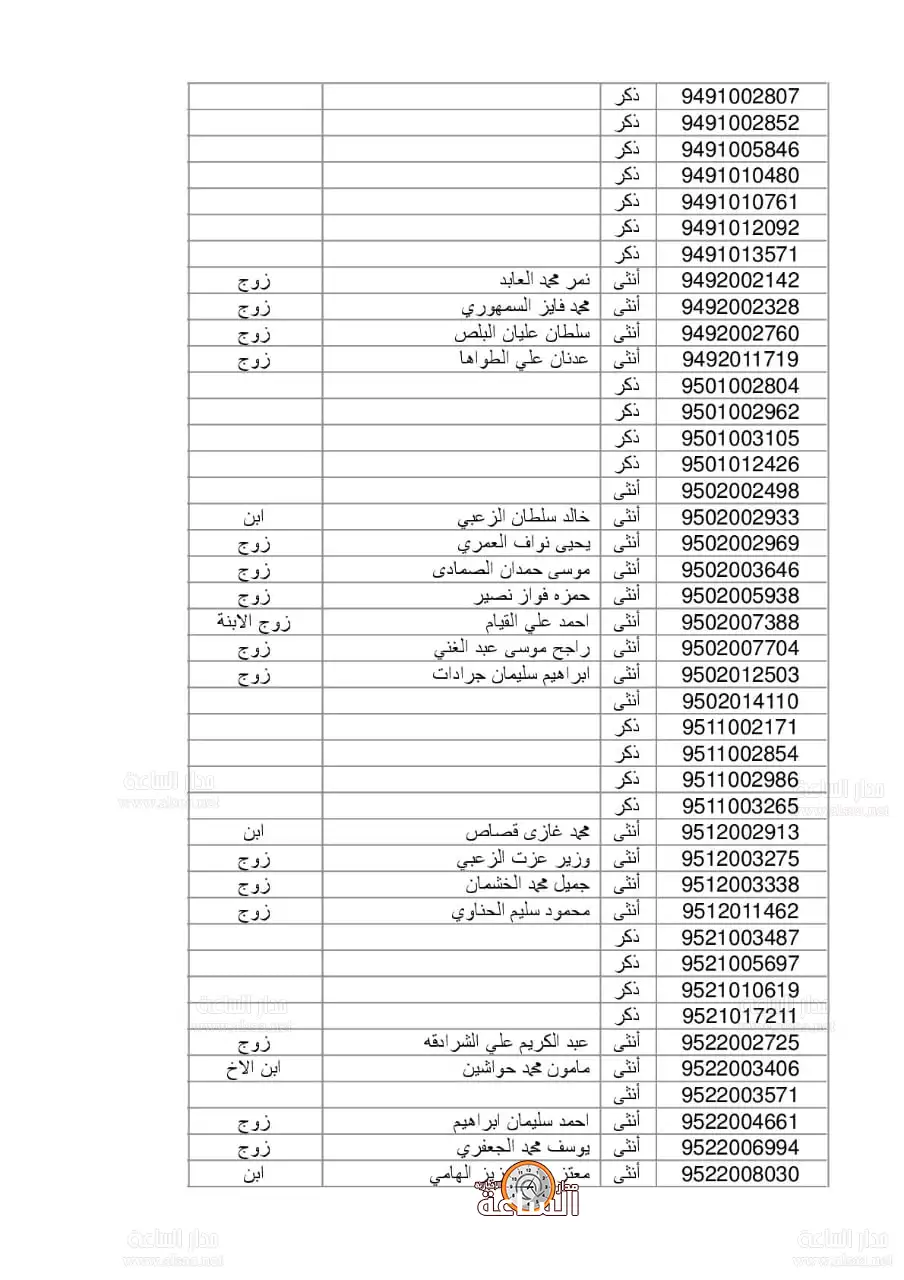 9491002807 ذكر
9491002852 ذكر
9491005846 ذكر
9491010480 ذكر
9491010761 ذكر
9491012092 ذكر
9491013571 ذكر
9492002142 أنثى نمر محمد العابد زوج
9492002328 أنثى محمد فايز السمهوري زوج
9492002760 أنثى سلطان عليان البلص زوج
9492011719 أنثى عدنان علي الطواها زوج
9501002804 ذكر
9501002962 ذكر
9501003105 ذكر
9501012426 ذكر
9502002498 أنثى
9502002933 أنثى خالد سلطان الزعبي ابن
9502002969 أنثى يحيى نواف العمري زوج
9502003646 أنثى موسى حمدان الصمادى زوج
9502005938 أنثى حمزه فواز نصير زوج
9502007388 أنثى احمد علي القيام زوج الابنة
9502007704 أنثى راجح موسى عبد الغني زوج
9502012503 أنثى ابراهيم سليمان جرادات زوج
9502014110 أنثى
9511002171 ذكر
9511002854 ذكر
9511002986 ذكر
9511003265 ذكر
9512002913 أنثى محمد غازى قصاص ابن
9512003275 أنثى وزير عزت الزعبي زوج
9512003338 أنثى جميل محمد الخشمان زوج
9512011462 أنثى محمود سليم الحناوي زوج
9521003487 ذكر
9521005697 ذكر
9521010619 ذكر
9521017211 ذكر
9522002725 أنثى عبد الكريم علي الشرادقه زوج
9522003406 أنثى مامون محمد حواشين ابن الاخ
9522003571 أنثى
9522004661 أنثى احمد سليمان ابراهيم زوج
9522006994 أنثى يوسف محمد الجعفري زوج
9522008030 أنثى الهامي ابن
مدار الساعة
مدار الساعة
www.alsaa.net
مدار الساعة
www.alsaa.net
مدار الساعة
www.alsaa.net
مدار الساعة
www.alsaa.net
مدار الساعة
www.alsaa.net
مدار الساعة
www.alsaa.net